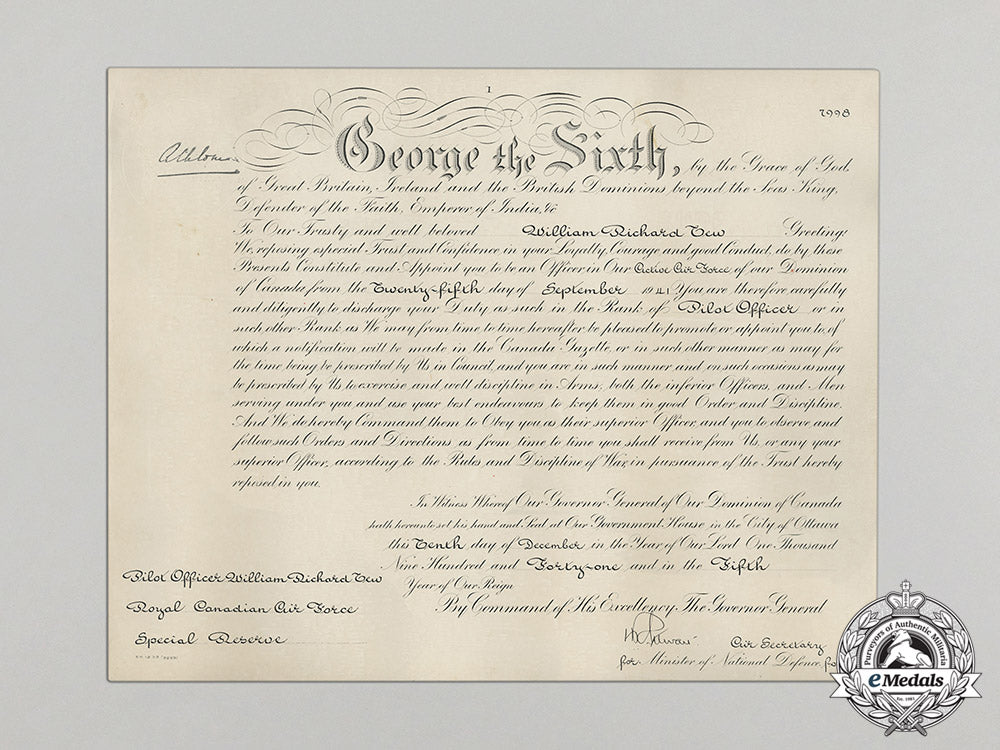 1
7998
Athlone
George the Sixth, by the Grace of God,
of Great Britain, Ireland and the British Dominions beyond the Seas King,
Defender of the Faith, Emperor of India, &c
To Our Trusty and well beloved William Richard Tew Greeting:
We, reposing especial Trust and Confidence in your Loyalty, Courage and good Conduct, do by these
Presents Constitute and Appoint you to be an Officer in Our Active Air Force of our Dominion
of Canada from the Twenty-fifth day of September 1941 You are therefore carefully
and diligently to discharge your Duty as such in the Rank of Pilot Officer or in
such other Rank as We may from time to time hereafter be pleased to promote or appoint you to, of
which a notification will be made in the Canada Gazette, or in such other manner as may for
the time being be prescribed by Us in Council, and you are in such manner and on such occasions as may
be prescribed by Us to exercise and well discipline in Arms, both the inferior Officers and Men
serving under you and use your best endeavours to keep them in good Order and Discipline,
And We do hereby Command them to Obey you as their superior Officer, and you to observe and
follow such Orders and Directions as from time to time you shall receive from Us, or any your
superior Officer, according to the Rules and Discipline of War, in pursuance of the Trust hereby
reposed in you.
In Witness Whereof Our Governor General of Our Dominion of Canada
hath hereunto set his hand and Seal at Our Government House in the City of Ottawa
this Tenth day of December in the Year of Our Lord One Thousand
Nine Hundred and Forty-one and in the Fifth
Year of Our Reign
By Command of His Excellency The Governor General
Air Secretary
for Minister of National Defence for
Pilot Officer William Richard Tew
Royal Canadian Air Force
Special Reserve
Purveyors of Authentic Militaria
eMedals
Est. 1981